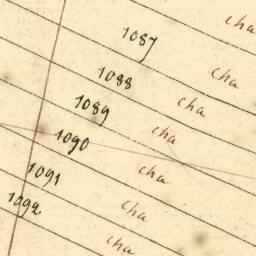 cha
1087 cha
1088 cha
1089 cha
1090 cha
1091 cha
1092 cha